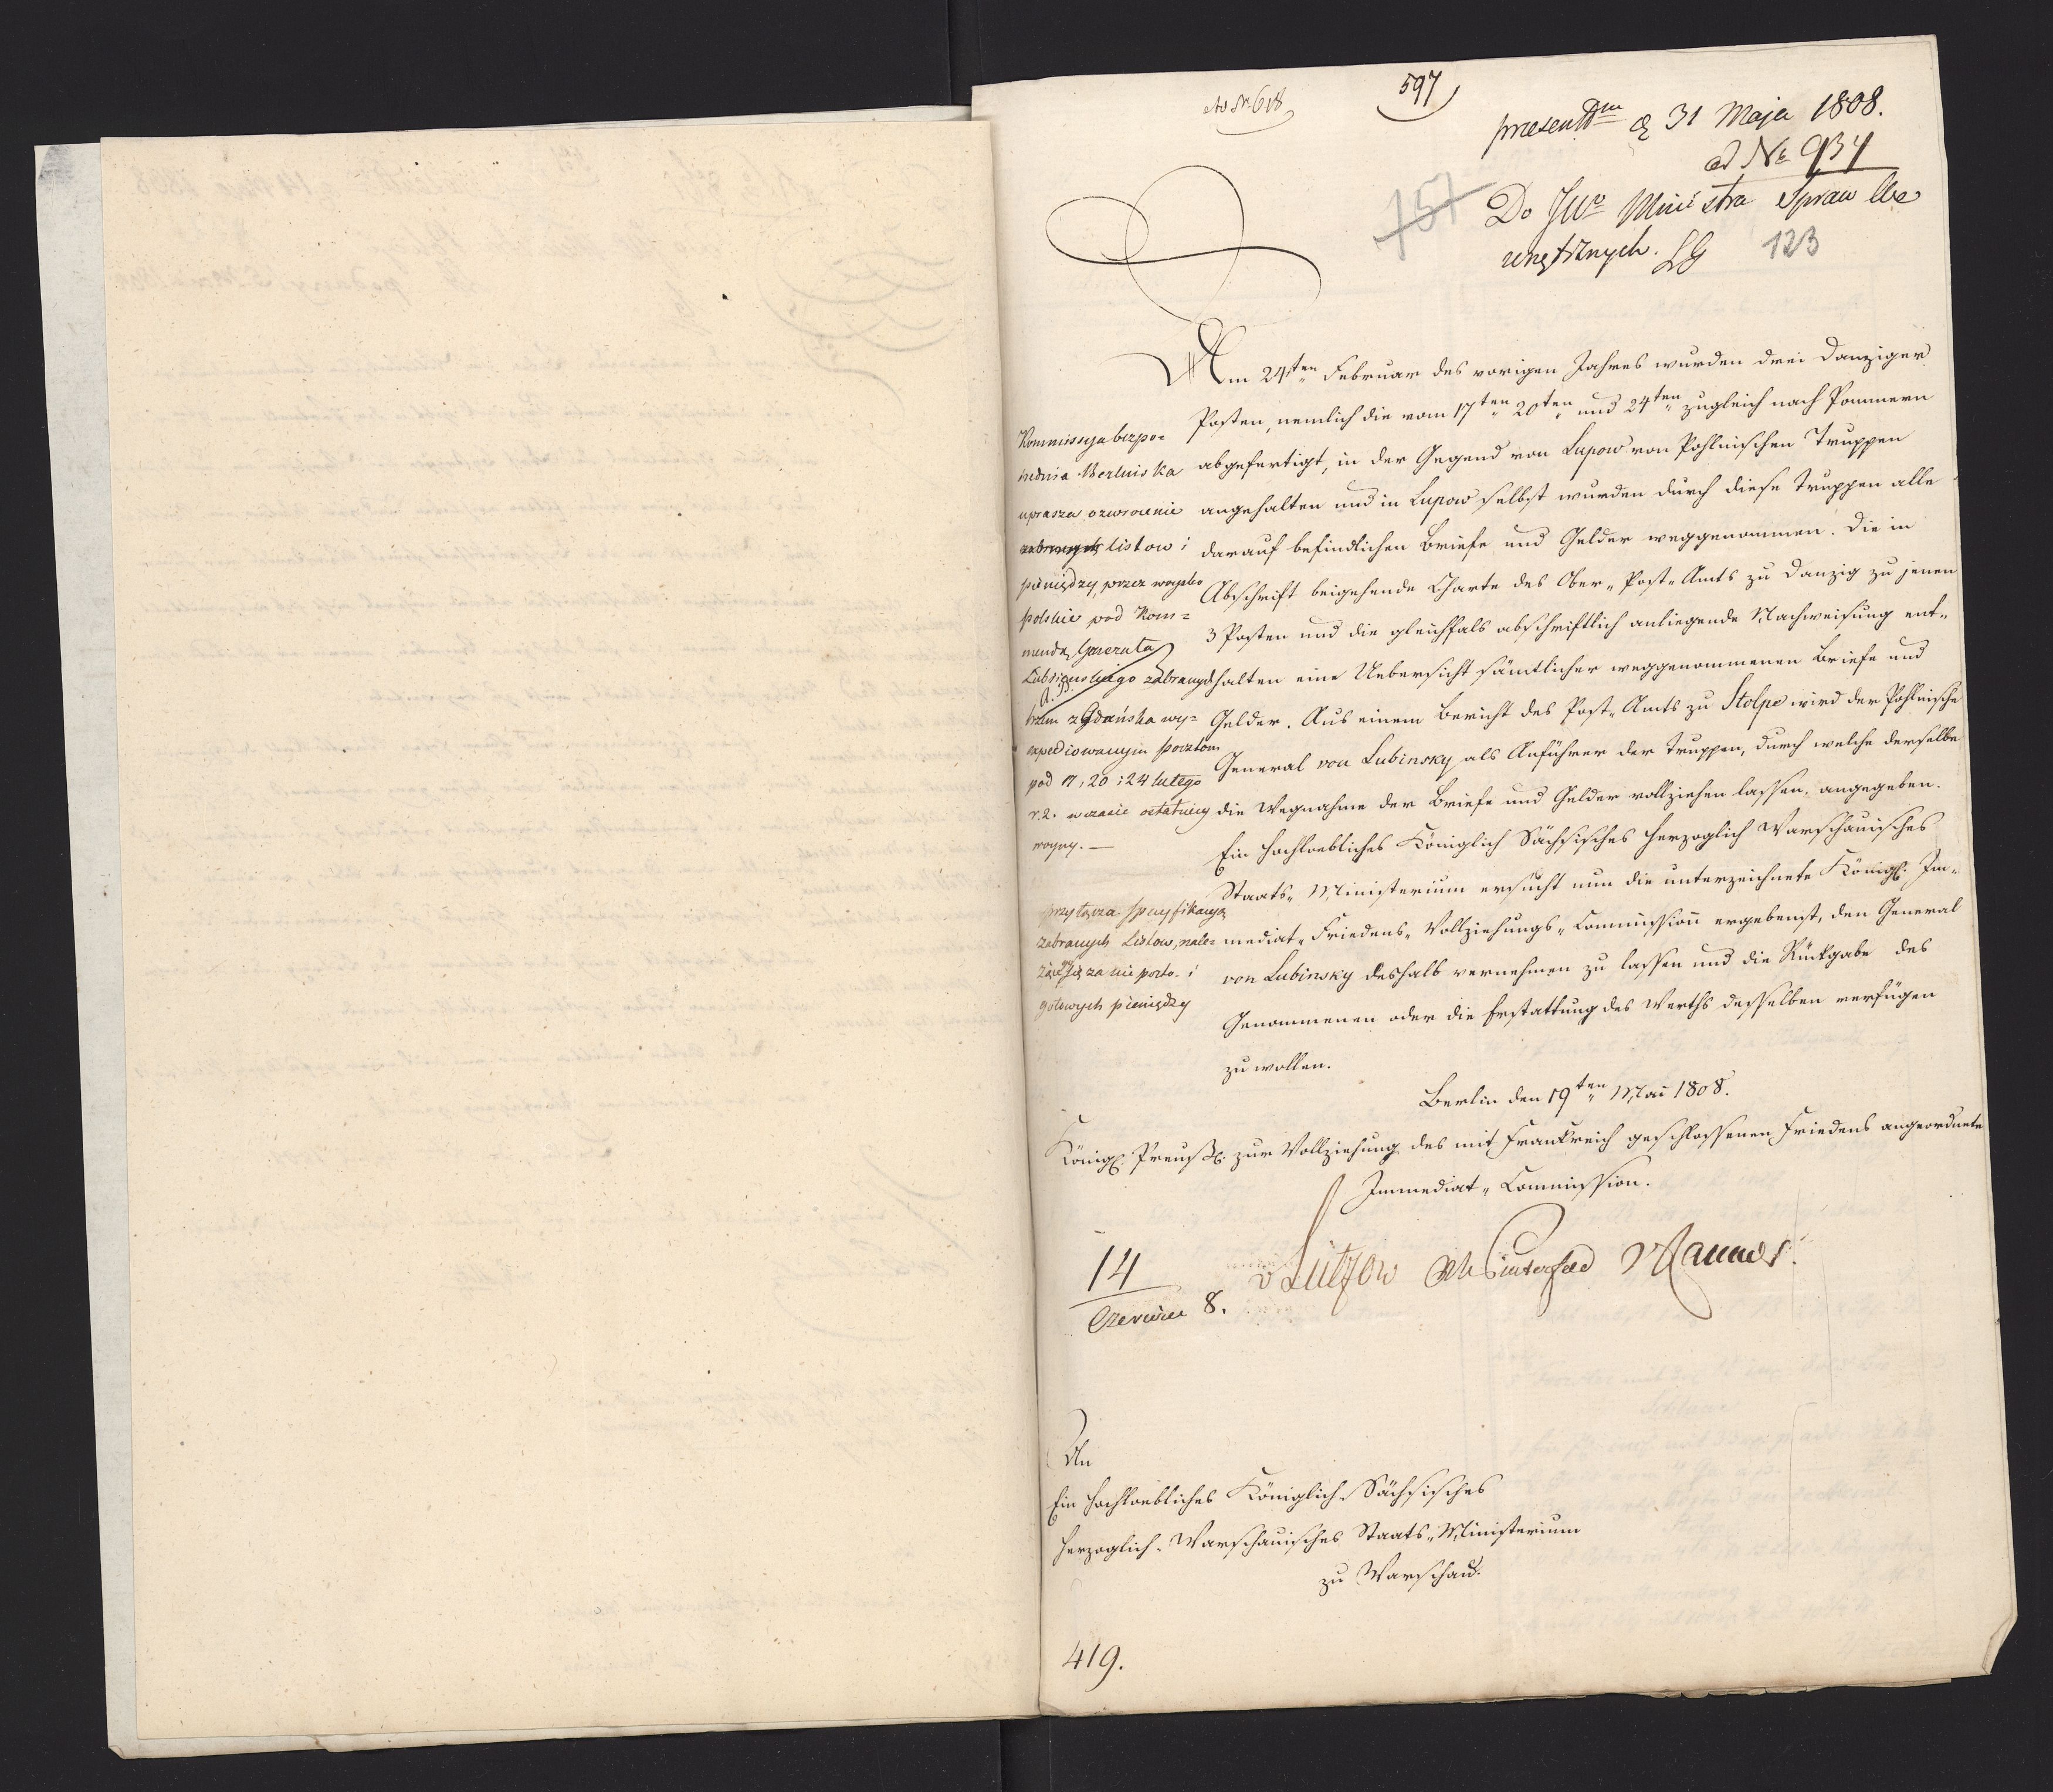 ad Nr. 618
597
praesentt d 31 Maja 1808.
ad Nr. 934
757
Do JW Ministra Spraw We
wnętrznych. LG
123
Am 24ten Februar des vorigen Jahres wurden drei Danziger
Posten, nemlich die vom 17ten 20ten und 24ten zugleich nach Pommern
abgefertigt, in der Gegend von Lupow von Pohlnischen Truppen
angehalten und in Lupow selbst wurden durch diese Truppen alle
darauf befindlichen Briefe und Gelder weggenommen. Die in
Abschrift beigehende Charte des Ober-Post-Amts zu Danzig zu jenen
3 Posten und die gleichfals abschriftlich anliegende Nachweisung ent-
halten eine Uebersicht sämtlicher weggenommenen Briefe und
Gelder. Aus einem Bericht des Post-Amts zu Stolpe wird der Pohlnische
General von Lubinsky als Anführer der Truppen, durch welche derselbe
die Wegnahme der Briefe und Gelder vollziehen lassen, angegeben.
Ein Hochloebliches Königlich Sächsisches Herzoglich Warschauisches
Staats-Ministerium ersucht nun die unterzeichnete Königl. Im-
mediat-Friedens-Vollziehungs-Commission ergebenst, den General
von Lubinsky deshalb vernehmen zu lassen und die Rückgabe des
Genommenen oder die Erstattung des Werths desselben verfügen
zu wollen.
Kommissya bezpo-
średnia Berlińska
uprasza o zwrocenie
zabranych listow i
pieniędzy, przez woysko
polskie pod Kom-
mendą Generała
Lubieńskiego zabranych
trzem z Gdańska wy-
expediowanym pocztom
pod 17, 20 i 24 lutego
r. z. w czasie ostatniey
woyny. —
przyłącza specyfikacyą
zabranych Listow, nale-
żącego się za nie porto. i
gotowych pieniędzy
Berlin den 19ten Mai 1808.
Königl. Preuß. zur Vollziehung des mit Frankreich geschlossenen Friedens angeordnete
Immediat-Commission.
v Lützow Winterfeld v Raumer.
14
Czerwiec 8.
An
Ein Hochloebliches Königlich-Sächsisches
Herzoglich-Warschauisches Staats-Ministerium
zu Warschau.
419.